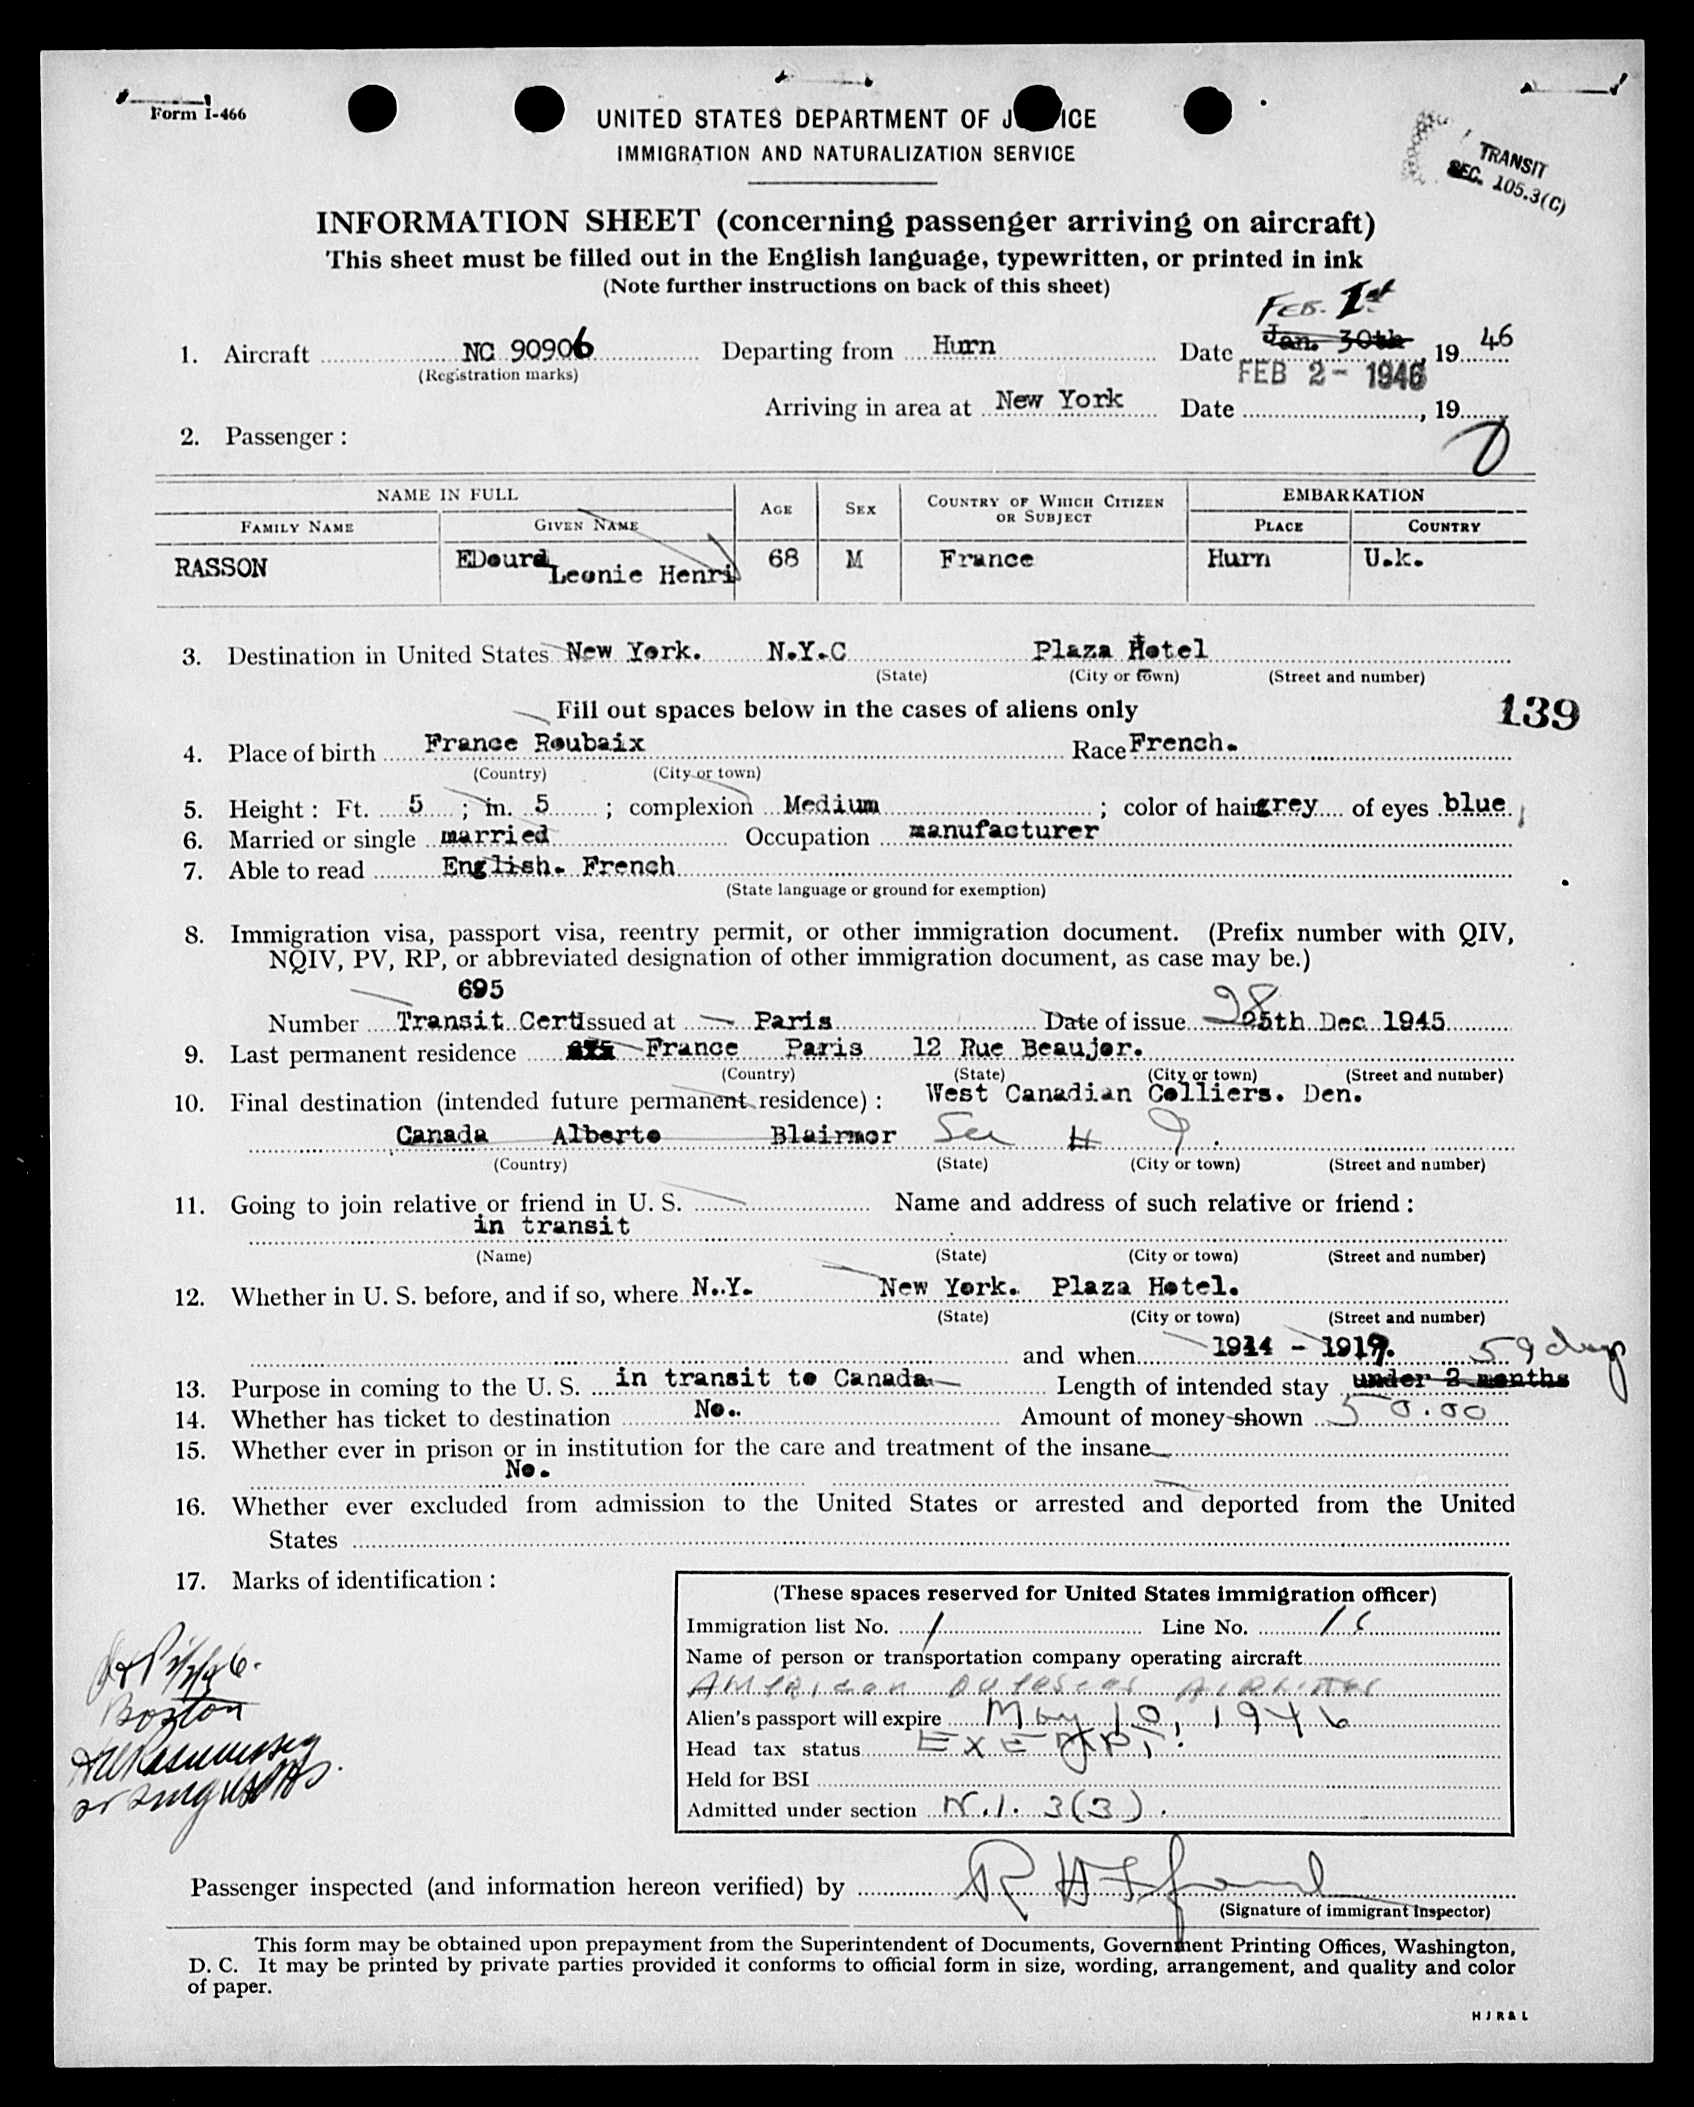 Form I-466
UNITED STATES DEPARTMENT OF J ICE
IMMIGRATION AND NATURALIZATION SERVICE
TRANSIT
SEC. 105.3(C)
INFORMATION SHEET (concerning passenger arriving on aircraft)
This sheet must be filled out in the English language, typewritten, or printed in ink
(Note further instructions on back of this sheet)
FEB. 1st
1. Aircraft NC 90906 Departing from Hurn Date Jan. 30th, 1946
(Registration marks) FEB 2- 1946
Arriving in area at New York Date , 19
2. Passenger :
NAME IN FULL AGE SEX COUNTRY OF WHICH CITIZEN OR SUBJECT EMBARKATION
FAMILY NAME GIVEN NAME PLACE COUNTRY
RASSON EDourd Leonie Henri 68 M France Hurn U.k.
3. Destination in United States New York. N.Y.C Plaza Hotel
(State) (City or town) (Street and number)
Fill out spaces below in the cases of aliens only 139
4. Place of birth France Roubaix Race French.
(Country) (City or town)
5. Height : Ft. 5 ; in. 5 ; complexion Medium ; color of hair grey of eyes blue
6. Married or single married Occupation manufacturer
7. Able to read English. French
(State language or ground for exemption)
8. Immigration visa, passport visa, reentry permit, or other immigration document. (Prefix number with QIV,
NQIV, PV, RP, or abbreviated designation of other immigration document, as case may be.)
695
Number Transit Cert Issued at Paris Date of issue 28 25th Dec 1945
9. Last permanent residence France Paris 12 Rue Beaujor.
(Country) (State) (City or town) (Street and number)
10. Final destination (intended future permanent residence) : West Canadian Colliers. Den.
Canada Alberto Blairmor See # 9.
(Country) (State) (City or town) (Street and number)
11. Going to join relative or friend in U. S. Name and address of such relative or friend :
in transit
(Name) (State) (City or town) (Street and number)
12. Whether in U. S. before, and if so, where N.Y. New York. Plaza Hotel.
(State) (City or town) (Street and number)
and when 1914 - 1919. 59 days
13. Purpose in coming to the U. S. in transit to Canada Length of intended stay under 2 months
14. Whether has ticket to destination No. Amount of money shown 50.00
15. Whether ever in prison or in institution for the care and treatment of the insane
No.
16. Whether ever excluded from admission to the United States or arrested and deported from the United
States
17. Marks of identification :
(These spaces reserved for United States immigration officer)
Immigration list No. 1 Line No.
Name of person or transportation company operating aircraft
American Overseas Airlines
Alien's passport will expire May 10, 1946
Head tax status EXEMPT.
Held for BSI
Admitted under section N.I. 3(3).
Boston
Passenger inspected (and information hereon verified) by
(Signature of immigrant inspector)
This form may be obtained upon prepayment from the Superintendent of Documents, Government Printing Offices, Washington,
D. C. It may be printed by private parties provided it conforms to official form in size, wording, arrangement, and quality and color
of paper.
H J R & L